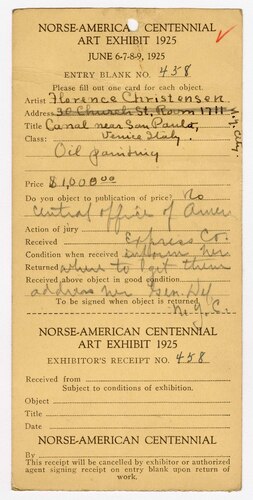 NORSE-AMERICAN CENTENNIAL
ART EXHIBIT 1925
JUNE 6-7-8-9, 1925
ENTRY BLANK NO. 458
Please fill out one card for each object.
Artist Florence Christensen
Address 30 Church St, Room 1711 N.Y. City
Title Canal near San Paulo,
Class: Venice Italy.
Oil painting
Price $1,000.00
Do you object to publication of price? No
central office of Amer
Action of jury
Received Express Co.
Condition when received inform her
Returned where to get them
Received above object in good condition
address her Gen Del
To be signed when object is returned
N.Y.C.
NORSE-AMERICAN CENTENNIAL
ART EXHIBIT 1925
EXHIBITOR'S RECEIPT NO. 458
Received from
Subject to conditions of exhibition.
Object
Title
Date
NORSE-AMERICAN CENTENNIAL
By
This receipt will be cancelled by exhibitor or authorized
agent signing receipt on entry blank upon return of
work.